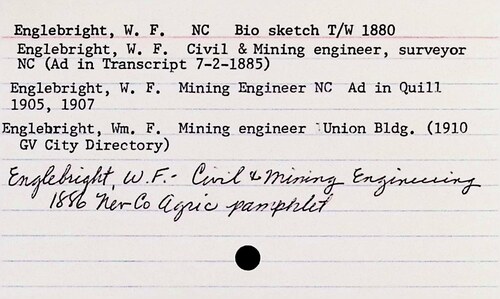 Englebright, W. F.   NC   Bio sketch T/W 1880
Englebright, W. F.  Civil & Mining engineer, surveyor
NC (Ad in Transcript 7-2-1885)
Englebright, W. F.  Mining Engineer NC  Ad in Quill
1905, 1907
Englebright, Wm. F.  Mining engineer  Union Bldg. (1910
GV City Directory)
Englebright, W.F.- Civil & Mining Engineering
1886 Nev Co Agric pamphlet